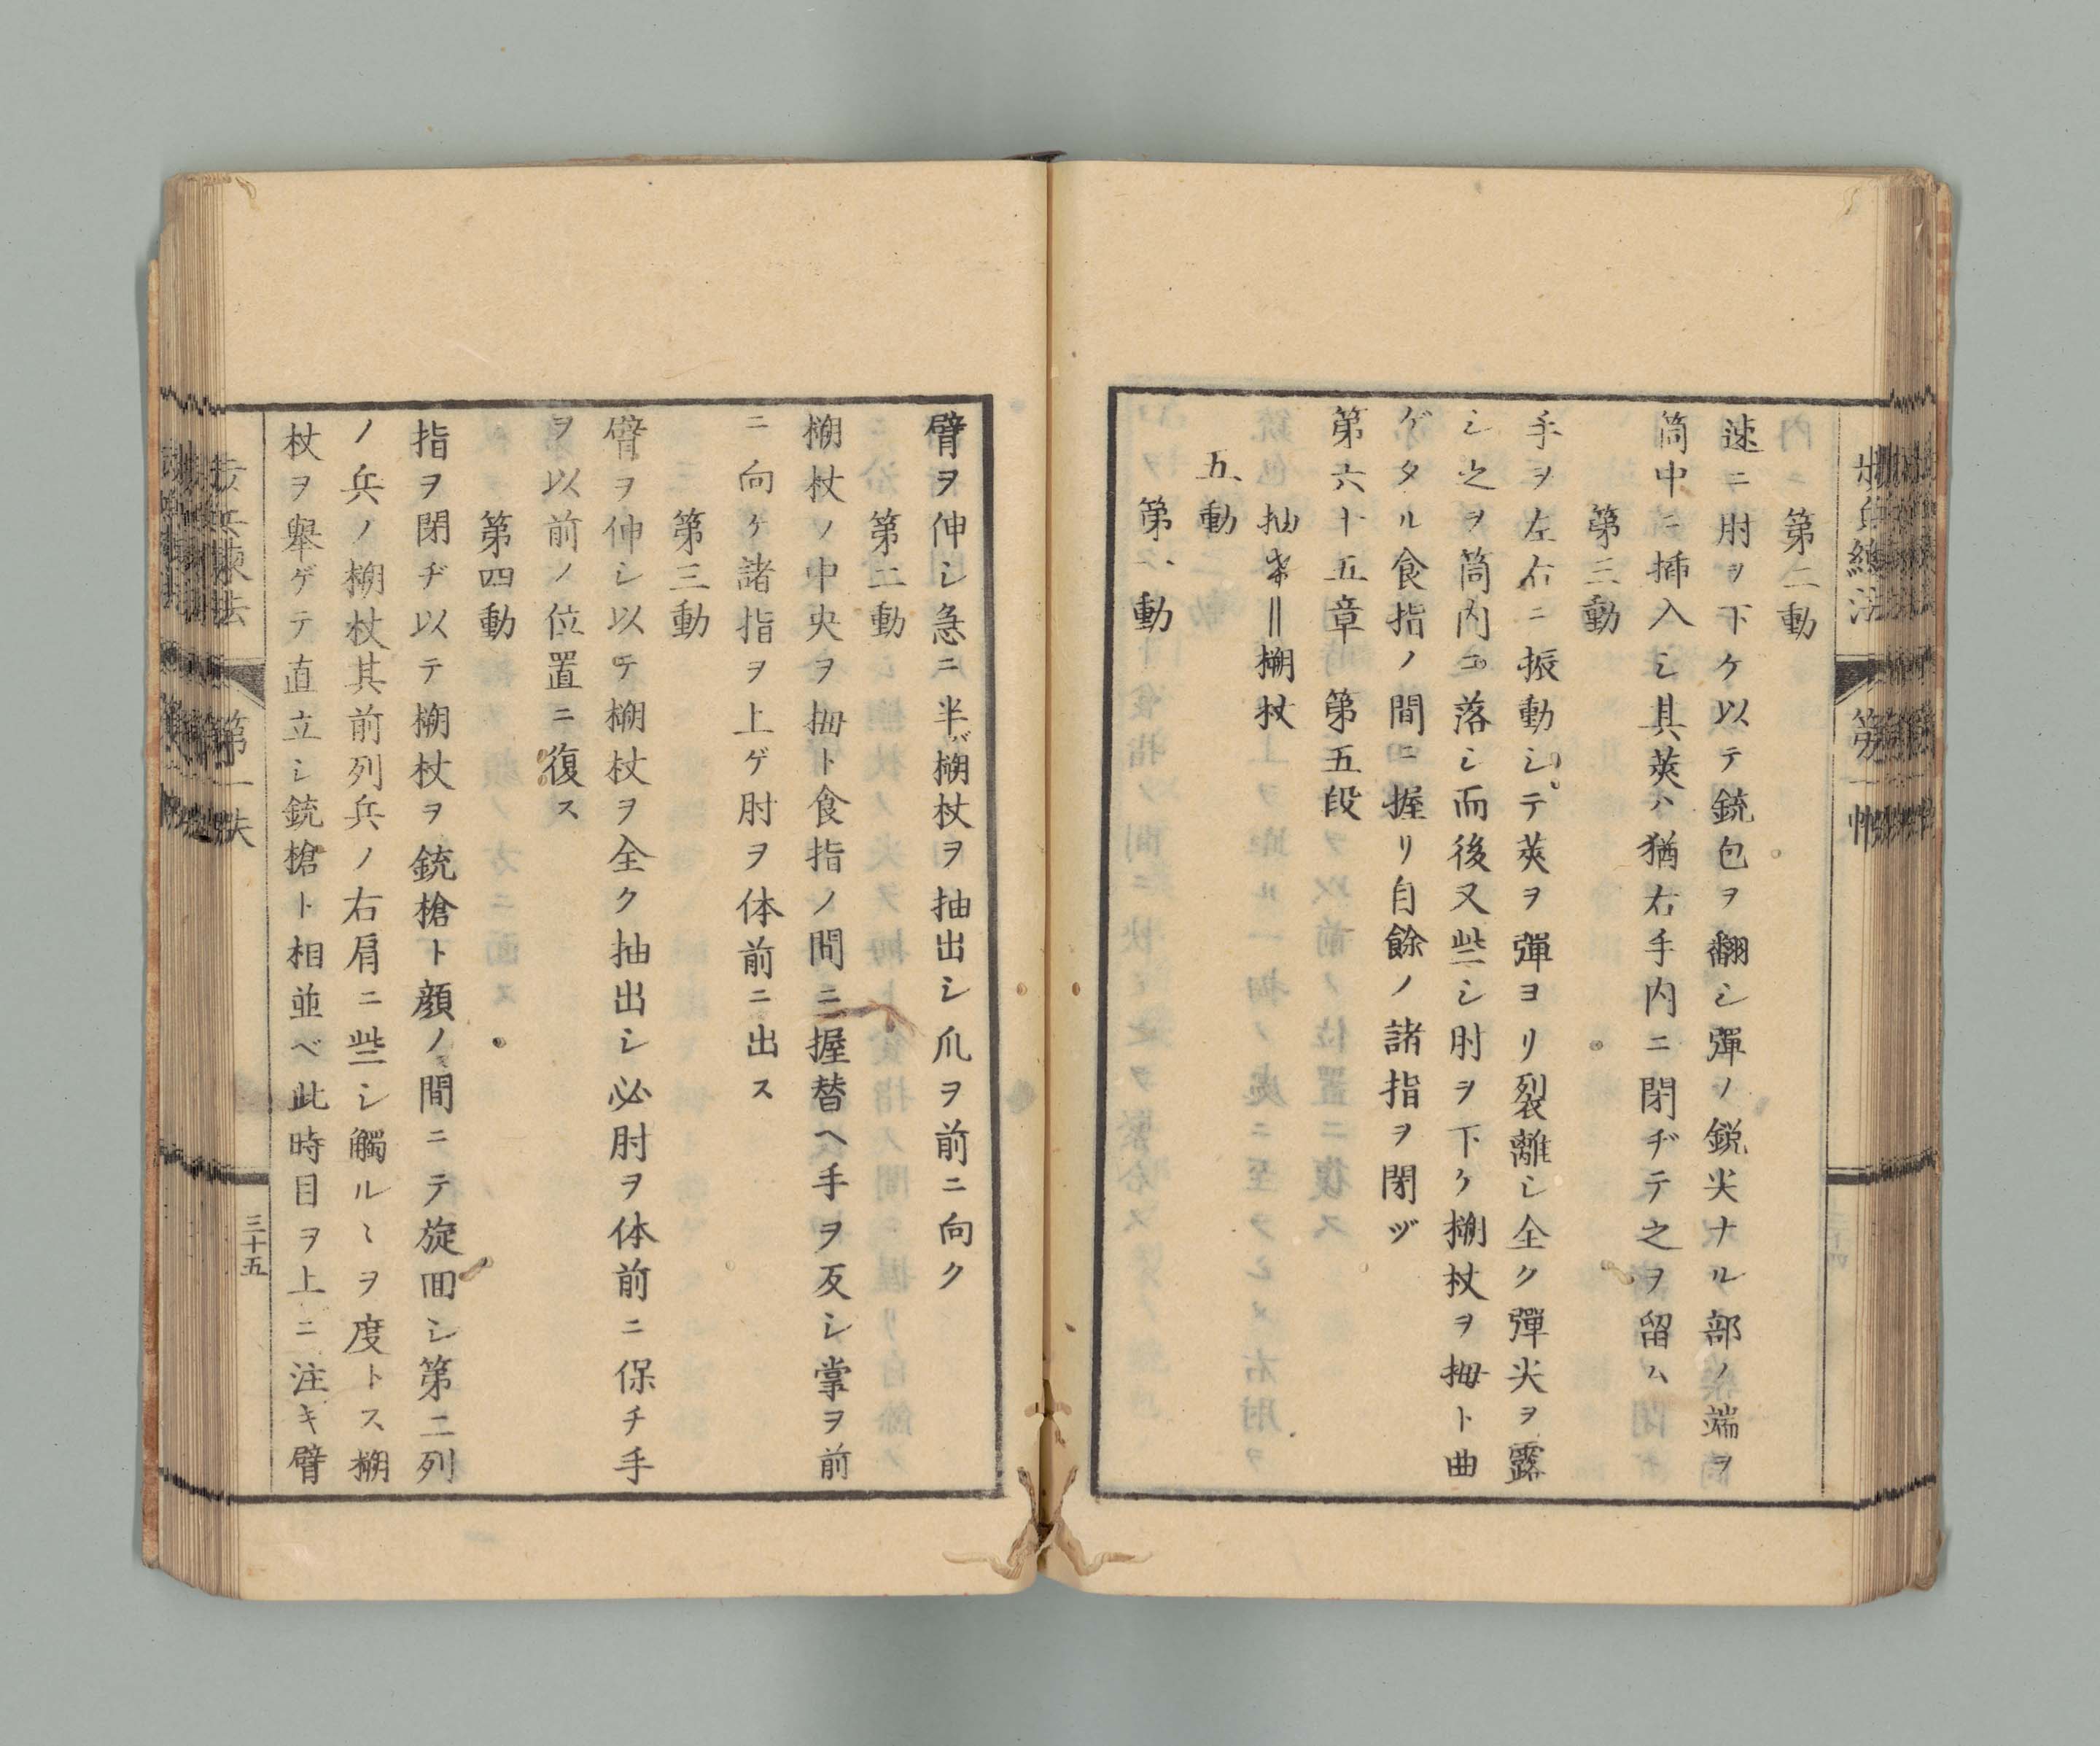 第二動
速ニ肘ヲ下ケ以テ銃包ヲ翻シ彈ノ鋭尖ナル部ノ端ヲ
筒中ニ挿入シ其莢ハ猶右手内ニ閉ヂテ之ヲ留ム
第三動
手ヲ左右ニ振動シテ莢ヲ彈ヨリ裂離シ全ク彈尖ヲ露
シ之ヲ筒内ニ落シ而後又些シ肘ヲ下ケ槊杖ヲ拇ト曲
ゲタル食指ノ間ニ握リ自餘ノ諸指ヲ閉ヅ
第六十五章 第五段
抽キ＝槊杖
五動
第一動
臂ヲ伸シ急ニ半バ槊杖ヲ抽出シ爪ヲ前ニ向ク
第二動
槊杖ノ中央ヲ拇ト食指ノ間ニ握替ヘ手ヲ反シ掌ヲ前
ニ向ケ諸指ヲ上ゲ肘ヲ体前ニ出ス
第三動
臂ヲ伸シ以テ槊杖ヲ全ク抽出シ必肘ヲ体前ニ保チ手
ヲ以前ノ位置ニ復ス
第四動
指ヲ閉ヂ以テ槊杖ヲ銃槍ト顔ノ間ニテ旋回シ第二列
ノ兵ノ槊杖其前列兵ノ右肩ニ些シ觸ルヽヲ度トス槊
杖ヲ舉ゲテ直立シ銃槍ト相並ベ此時目ヲ上ニ注キ臂
第一帙
三十五